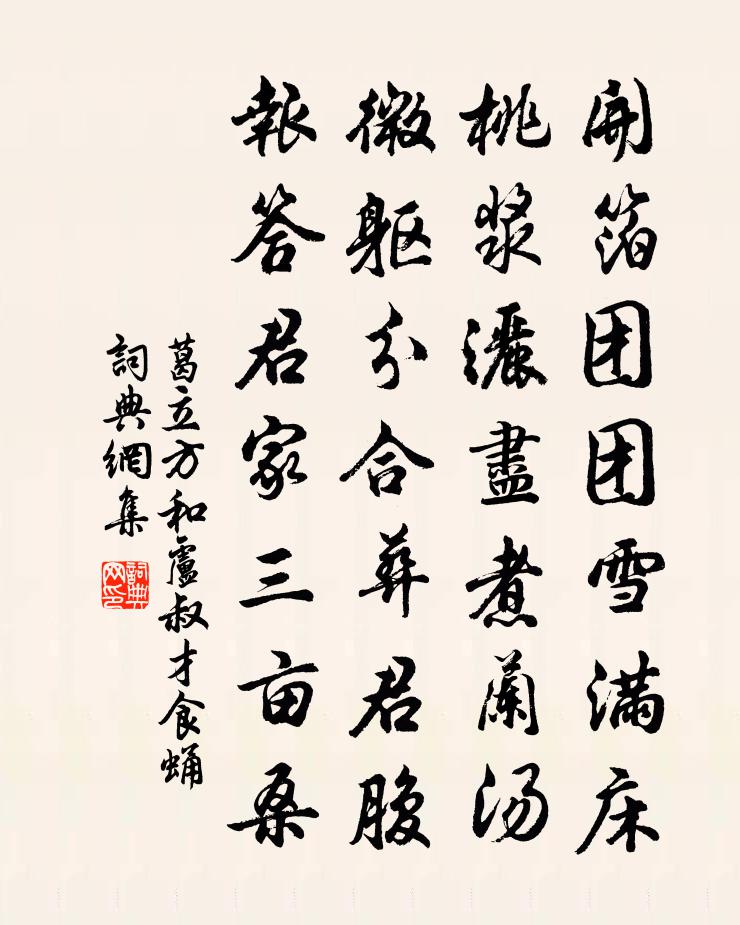 開箔团团雪滿床
桃漿灑盡煮蘭汤
微躯分合葬君腹
報答君家三亩桑
葛立方和盧叔才食蛹
詞典網集
詞典网印